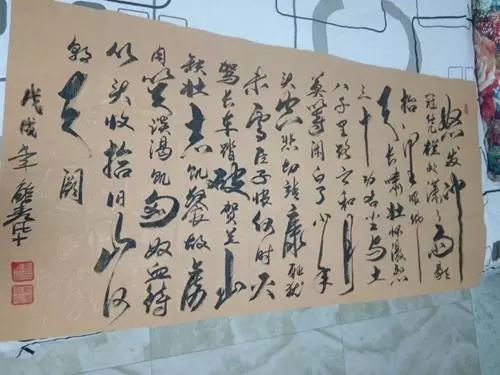 怒发冲
冠凭栏处潇潇雨歇
抬望眼仰
天长啸壮怀激烈
三十功名尘与土
八千里路云和月
莫等闲白了少年
头空悲切靖康耻犹
未雪臣子恨何时灭
驾长车踏破贺兰山
缺壮志饥餐胡虏
肉笑谈渴饮匈奴血待
从头收拾旧山河
朝天阙
戊戌年